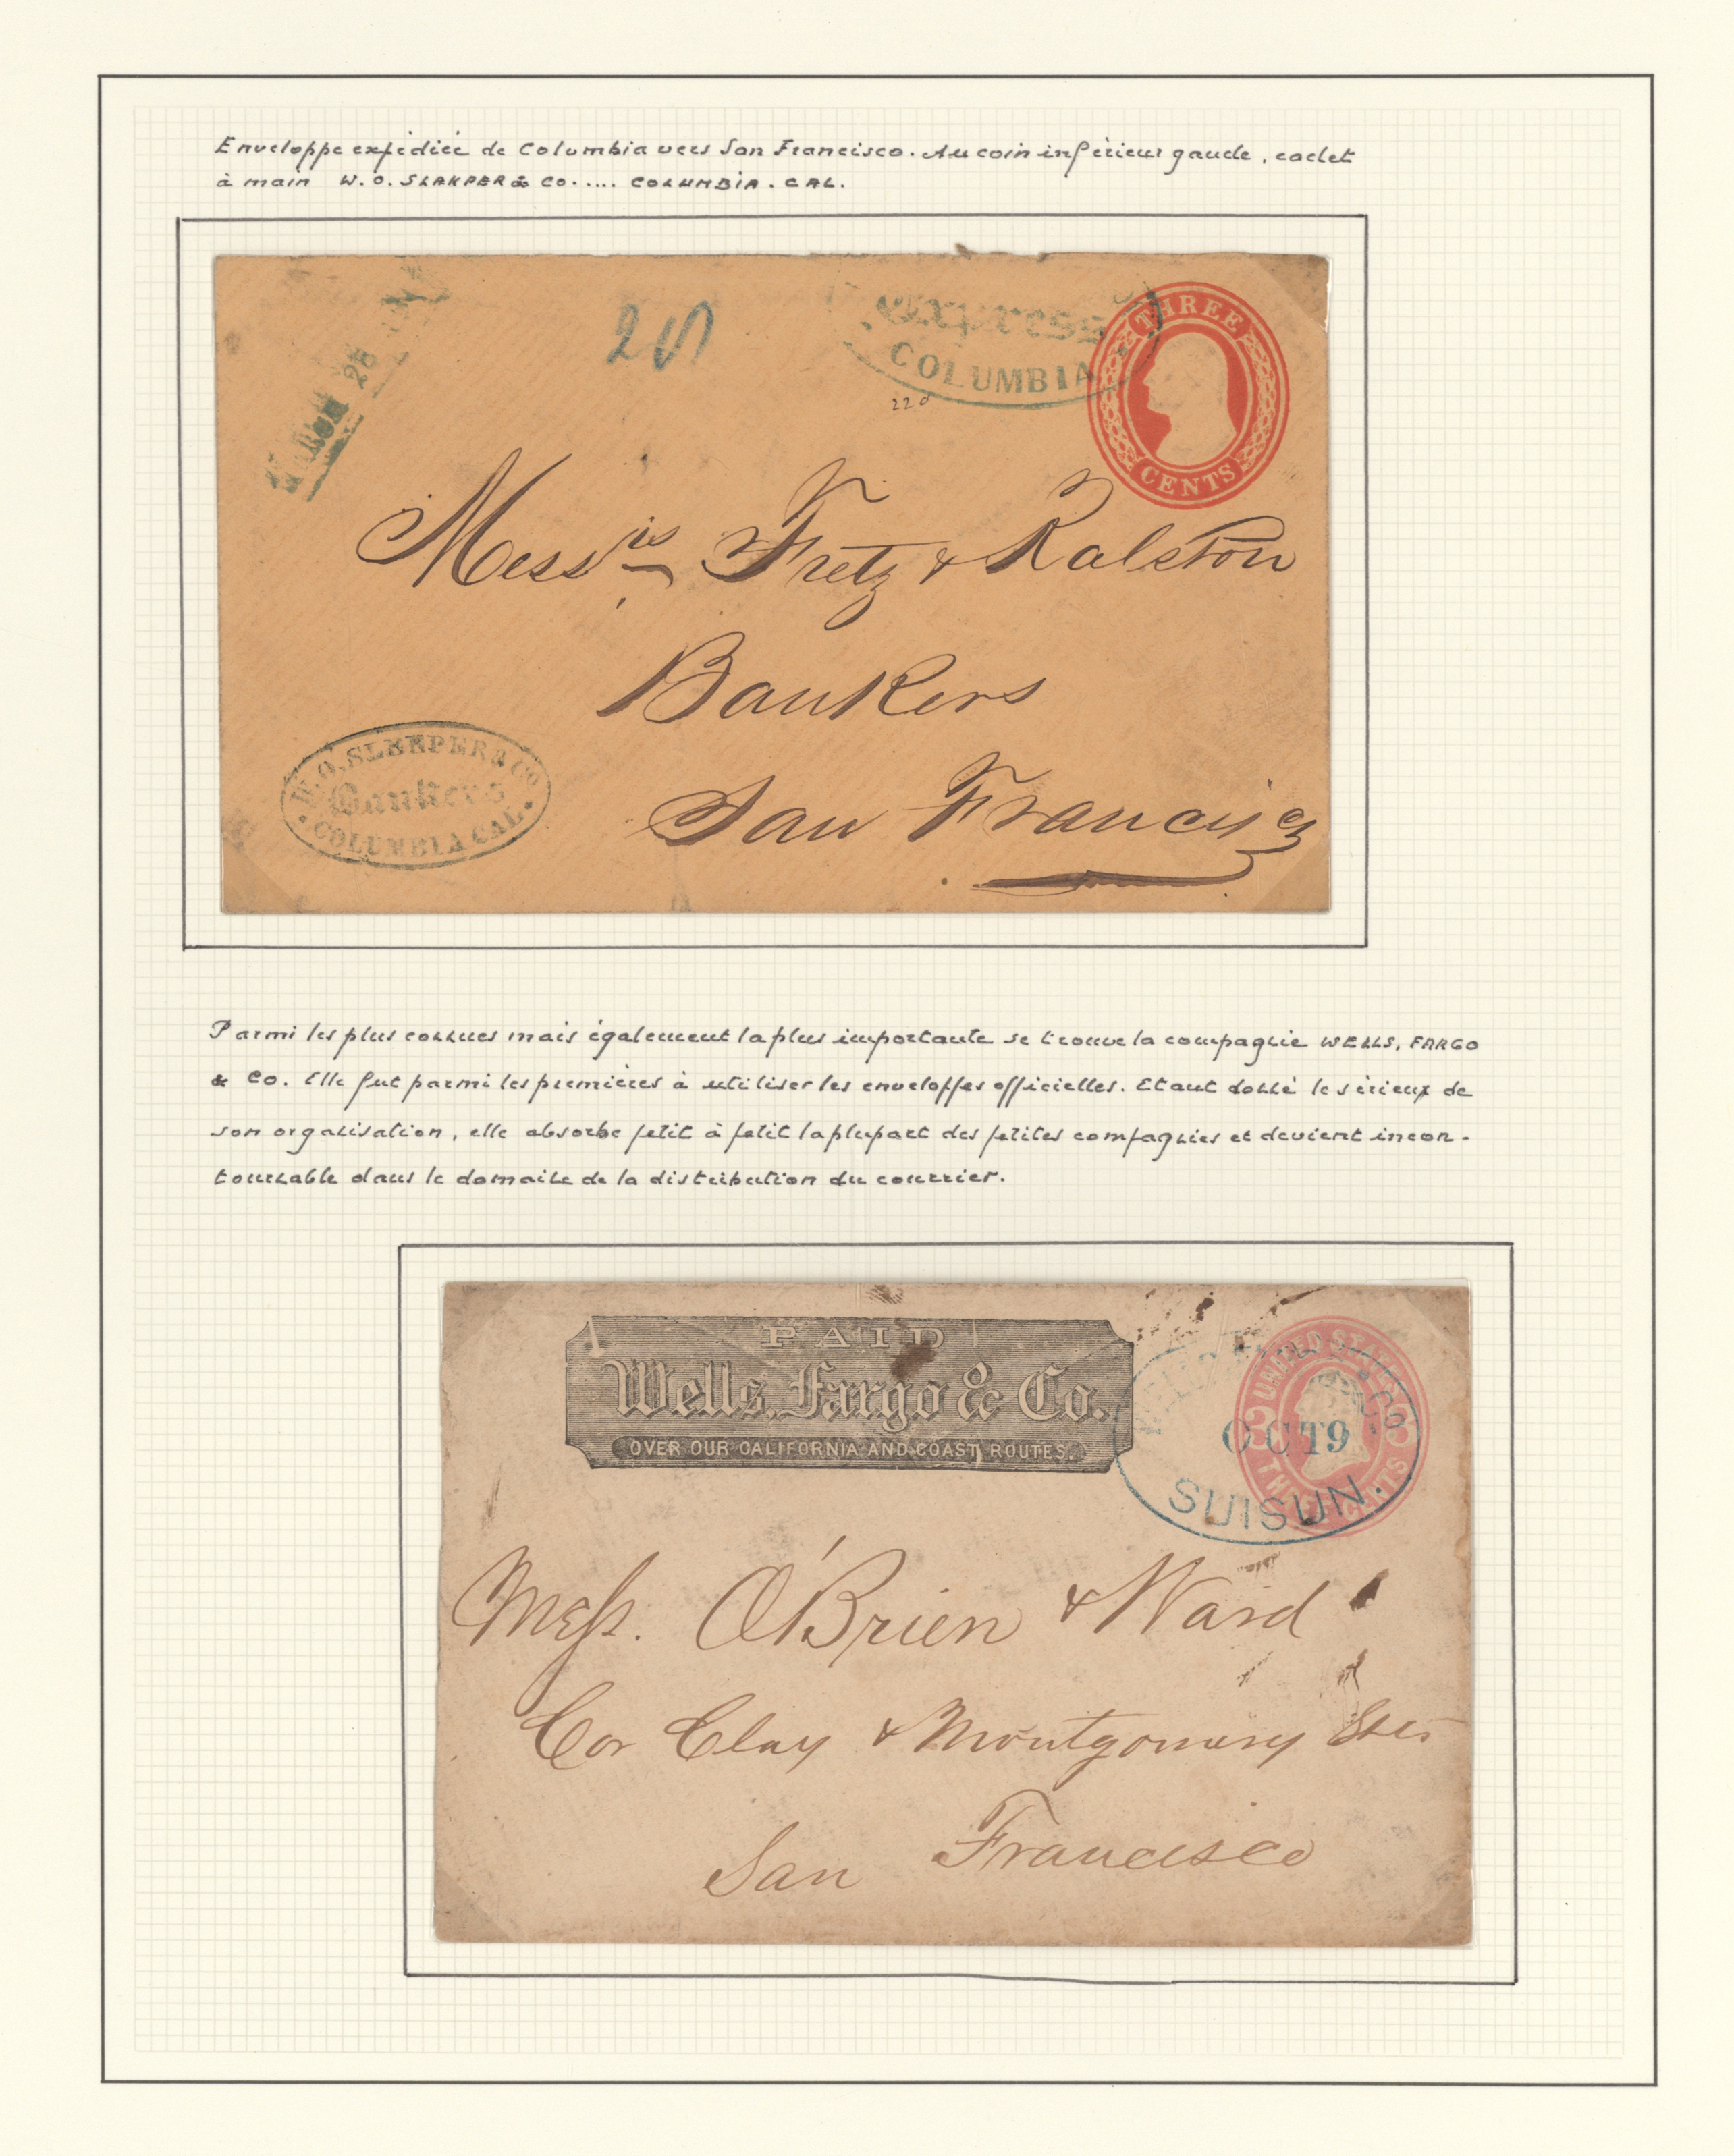 Enveloppe expédiée de Columbia vers San Francisco. Au coin inférieur gauche, cachet
à main W.O. SLAKPER & CO..... COLUMBIA. CAL.
25
Express
COLUMBIA
220
THREE
CENTS
Messrs Fretz & Ralston
Bankers
San Francisco
W.O. SLEEPER & Co
Bankers
COLUMBIA CAL.
Parmi les plus connues mais également la plus importante se trouve la compagnie WELLS, FARGO
& CO. Elle fut parmi les premières à utiliser les enveloppes officielles. Etant donné le sérieux de
son organisation, elle absorbe petit à petit la plupart des petites compagnies et devient incon-
tournable dans le domaine de la distribution du courrier.
PAID
Wells, Fargo & Co.
OVER OUR CALIFORNIA AND COAST ROUTES.
UNITED STATES
3 3
THREE CENTS
& CO
OCT 9
SUISUN.
Mess. O'Brien & Ward
Cor Clay & Montgomery Sts
San Francisco